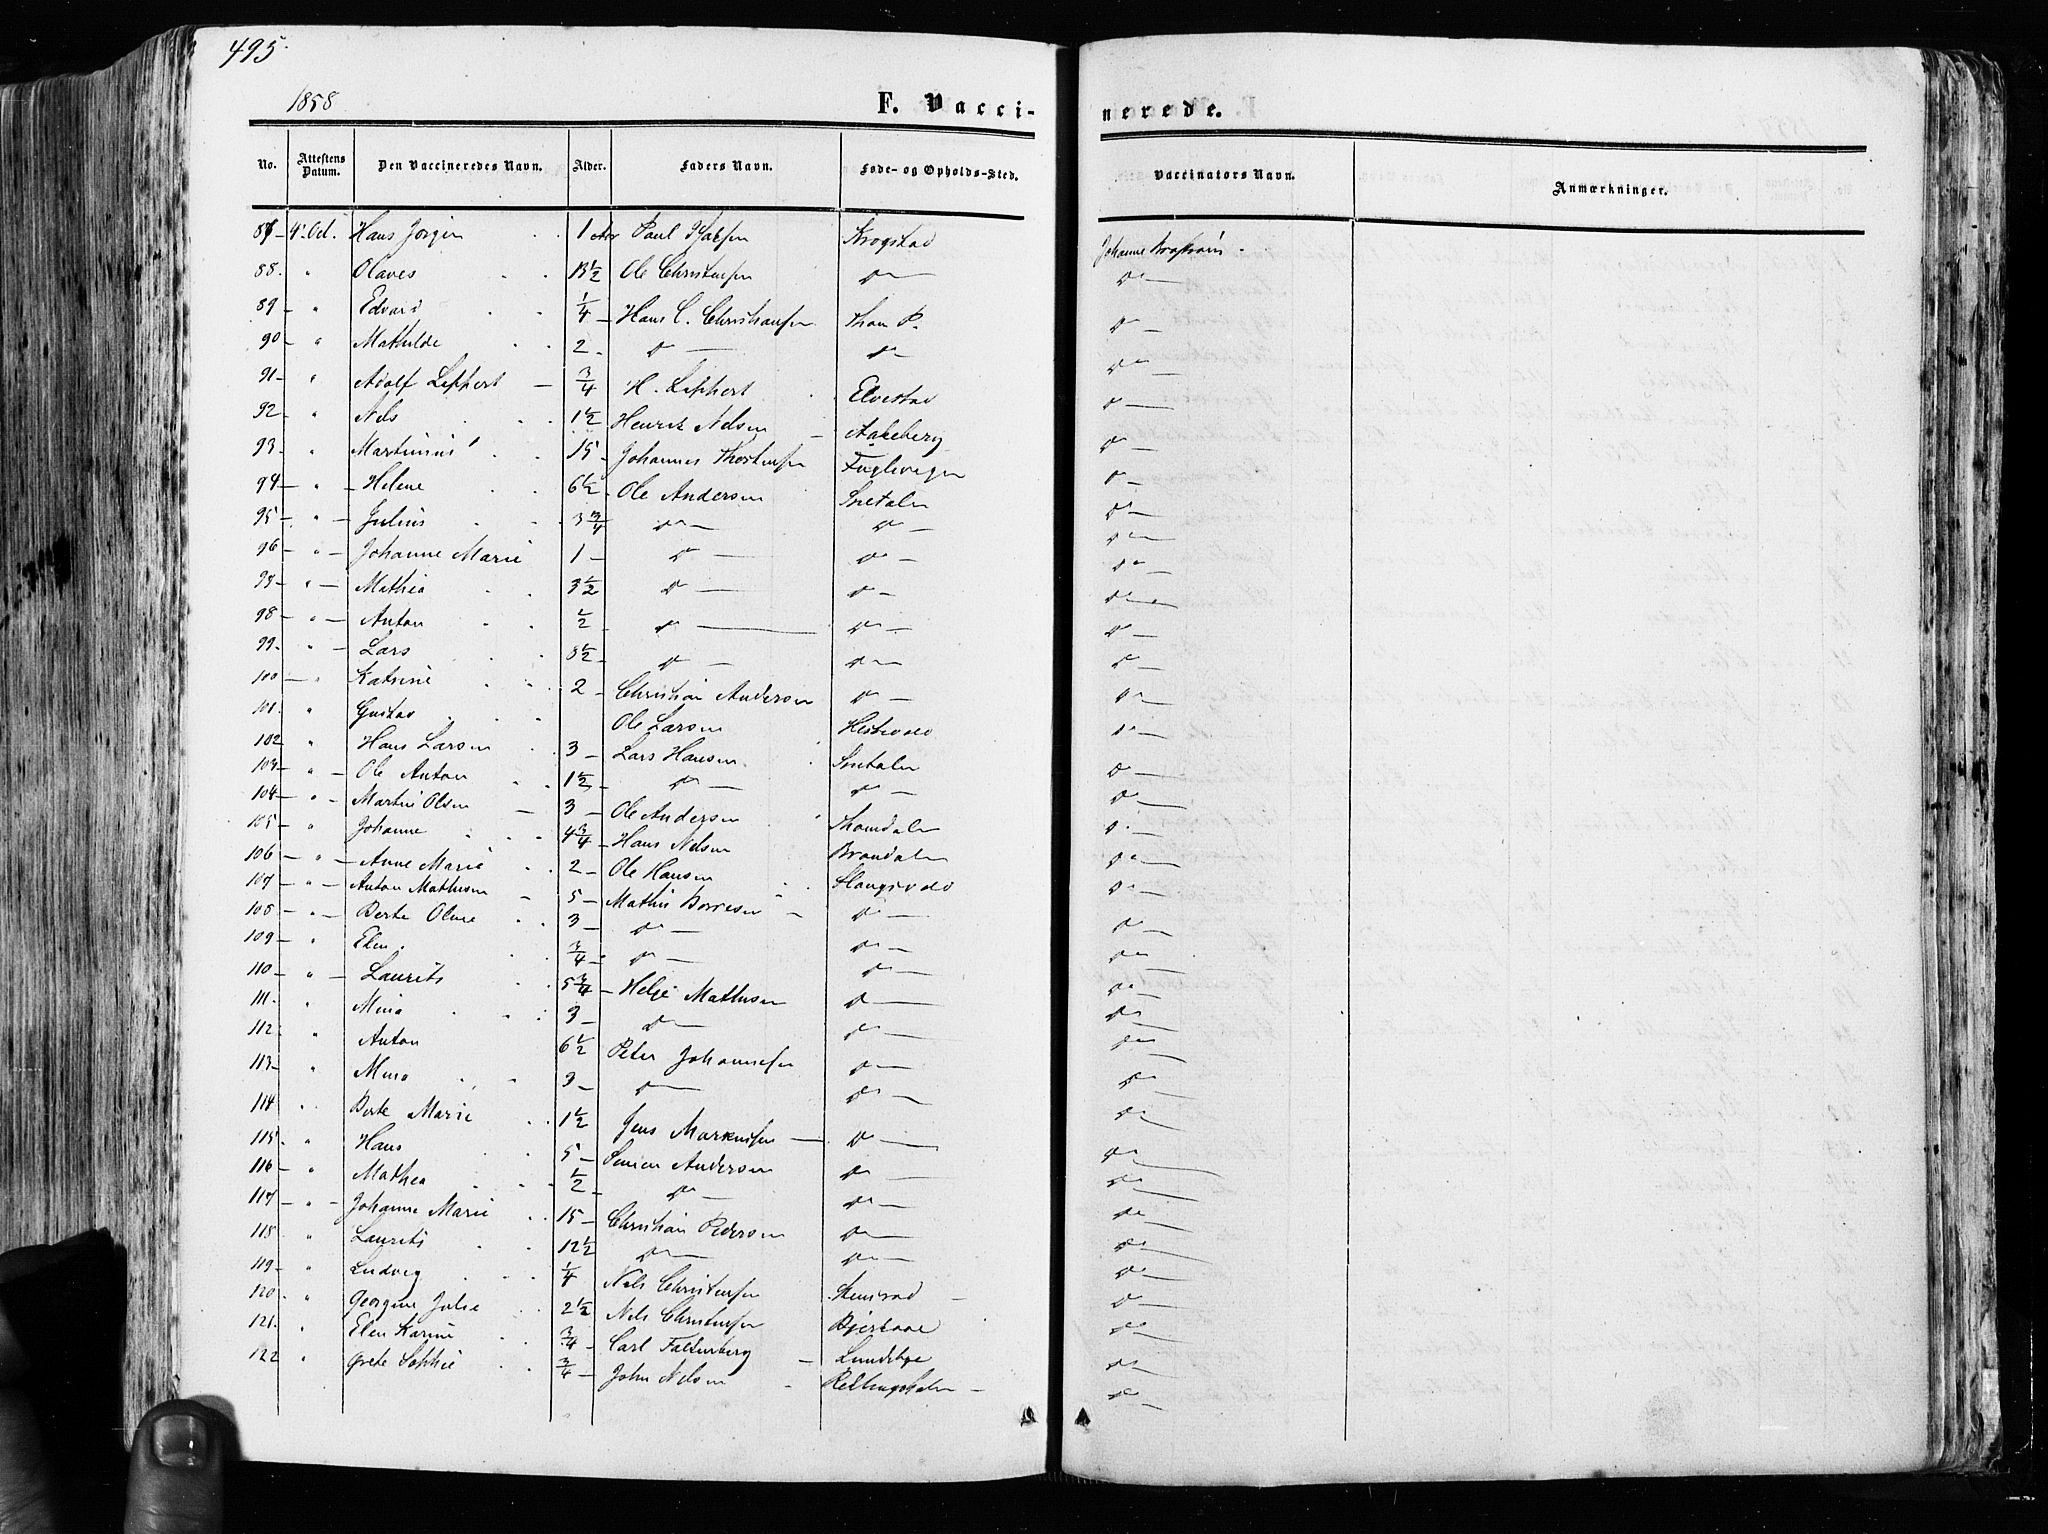 495.
1858
F. Vacci-
nerede.
No.
Attestens Datum.
Den Vaccineredes Navn.
Alder.
Faders Navn.
Føde- og Opholds-Sted.
Vaccinators Navn.
Anmærkninger.
87 – 4' Oct. Hans Jørgen 1 Aar Paul Krogstad Johanne
88. " Olaves 13 1/2 Ole Christensen do — do —
89 – " Edvard 1/4 – Hans C. Christiansen Thon P. do —
90 – " Mathilde 2 – do — do — do —
91 – " Adolf Lippert – 3/4 H. Lippert Elvestad do —
92 " Nels 1 1/2 Henrik Nelsen – Aakeberg do —
93 – " Martinius 15 – Johannes Thorstensen Fuglevigen do —
94 – " – Helene 6 1/2 Ole Andersen Snetalen do —
95 – " – Julius 3 3/4 do — do — do —
96 – " – Johanne Marie 1 – do — do — do —
97 – " – Mathea 3 1/2 do — do — do —
98 – " – Anton 1/2 do — do — do —
99. " – Lars 8 1/2 – do — do — do —
100 – " Katrine 2 – Christian Andersen do — do —
101. " Gustav Ole Larsen do —
102 " Hans Larsen 3 – Lars Hansen Snetalen do —
103. " – Ole Anton 1 1/2 do — do — do —
104 – " – Martin Olsen – 3 – Ole Andersen Thomdalen do —
105 – " Johanne 4 3/4 Hans Nelsen Brandalen do —
106 – " – Anne Marie 2 – Ole Hansen do —
107 – " – Anton Mathisen – 5 – Mathis Borresen – do — do —
108 – " – Berte Oline 3 – do — do — do —
109 – " Elen 3/4 – do — do — do —
110 – " – Laurits 5 3/4 – Helge Mathisen do — do —
111. " Mina 3 – do — do — do —
112. " Anton 6 1/2 Peter Johannesen do — do —
113 – " Mina 3 – do — do — do —
114 " Berte Marie 1 1/2 Jens Markussen – do — do —
115. " Hans 5 – Simen Andersen do — do —
116 – " Mathea 1/2 – do — do — do —
117 – " – Johanne Marie 15 – Christian Pedersen do — do —
118 " Laurits 12 1/2 do — do — do —
119 – " Ludvig 1/4 Nels Christensen Stensrød – do —
120. " Georgine Julie 2 1/2 Nels Christensen do —
121. " Elen Karine 3/4 – Carl Falkenberg – Lundebye do —
122 " Grete Sophie 3/4 – John Nelsen – do —